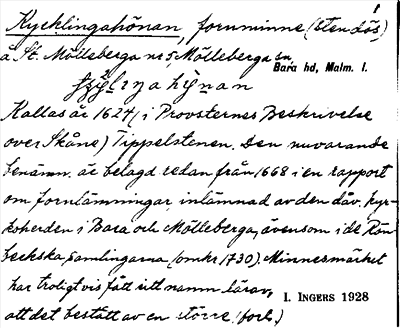 1
Kycklingahönan, fornminne (stendös)
å St. Mölleberga nr 5 Mölleberga sn,
Bara hd, Malm. l.
Kallas år 1624 (i Provsternes Beskrivelse
over Skåne) Tippelstenen. Den nuvarande
benämn. är belagd redan från 1668 i en rapport
om fornlämningar, inlämnad av den dåv. kyr-
koherden i Bara och Mölleberga, ävensom i de Rön-
beckska samlingarna (omkr. 1730). Minnesmärket
har troligtvis fått sitt namn därav,
att det bestått av en större (forts.)
I. INGERS 1928